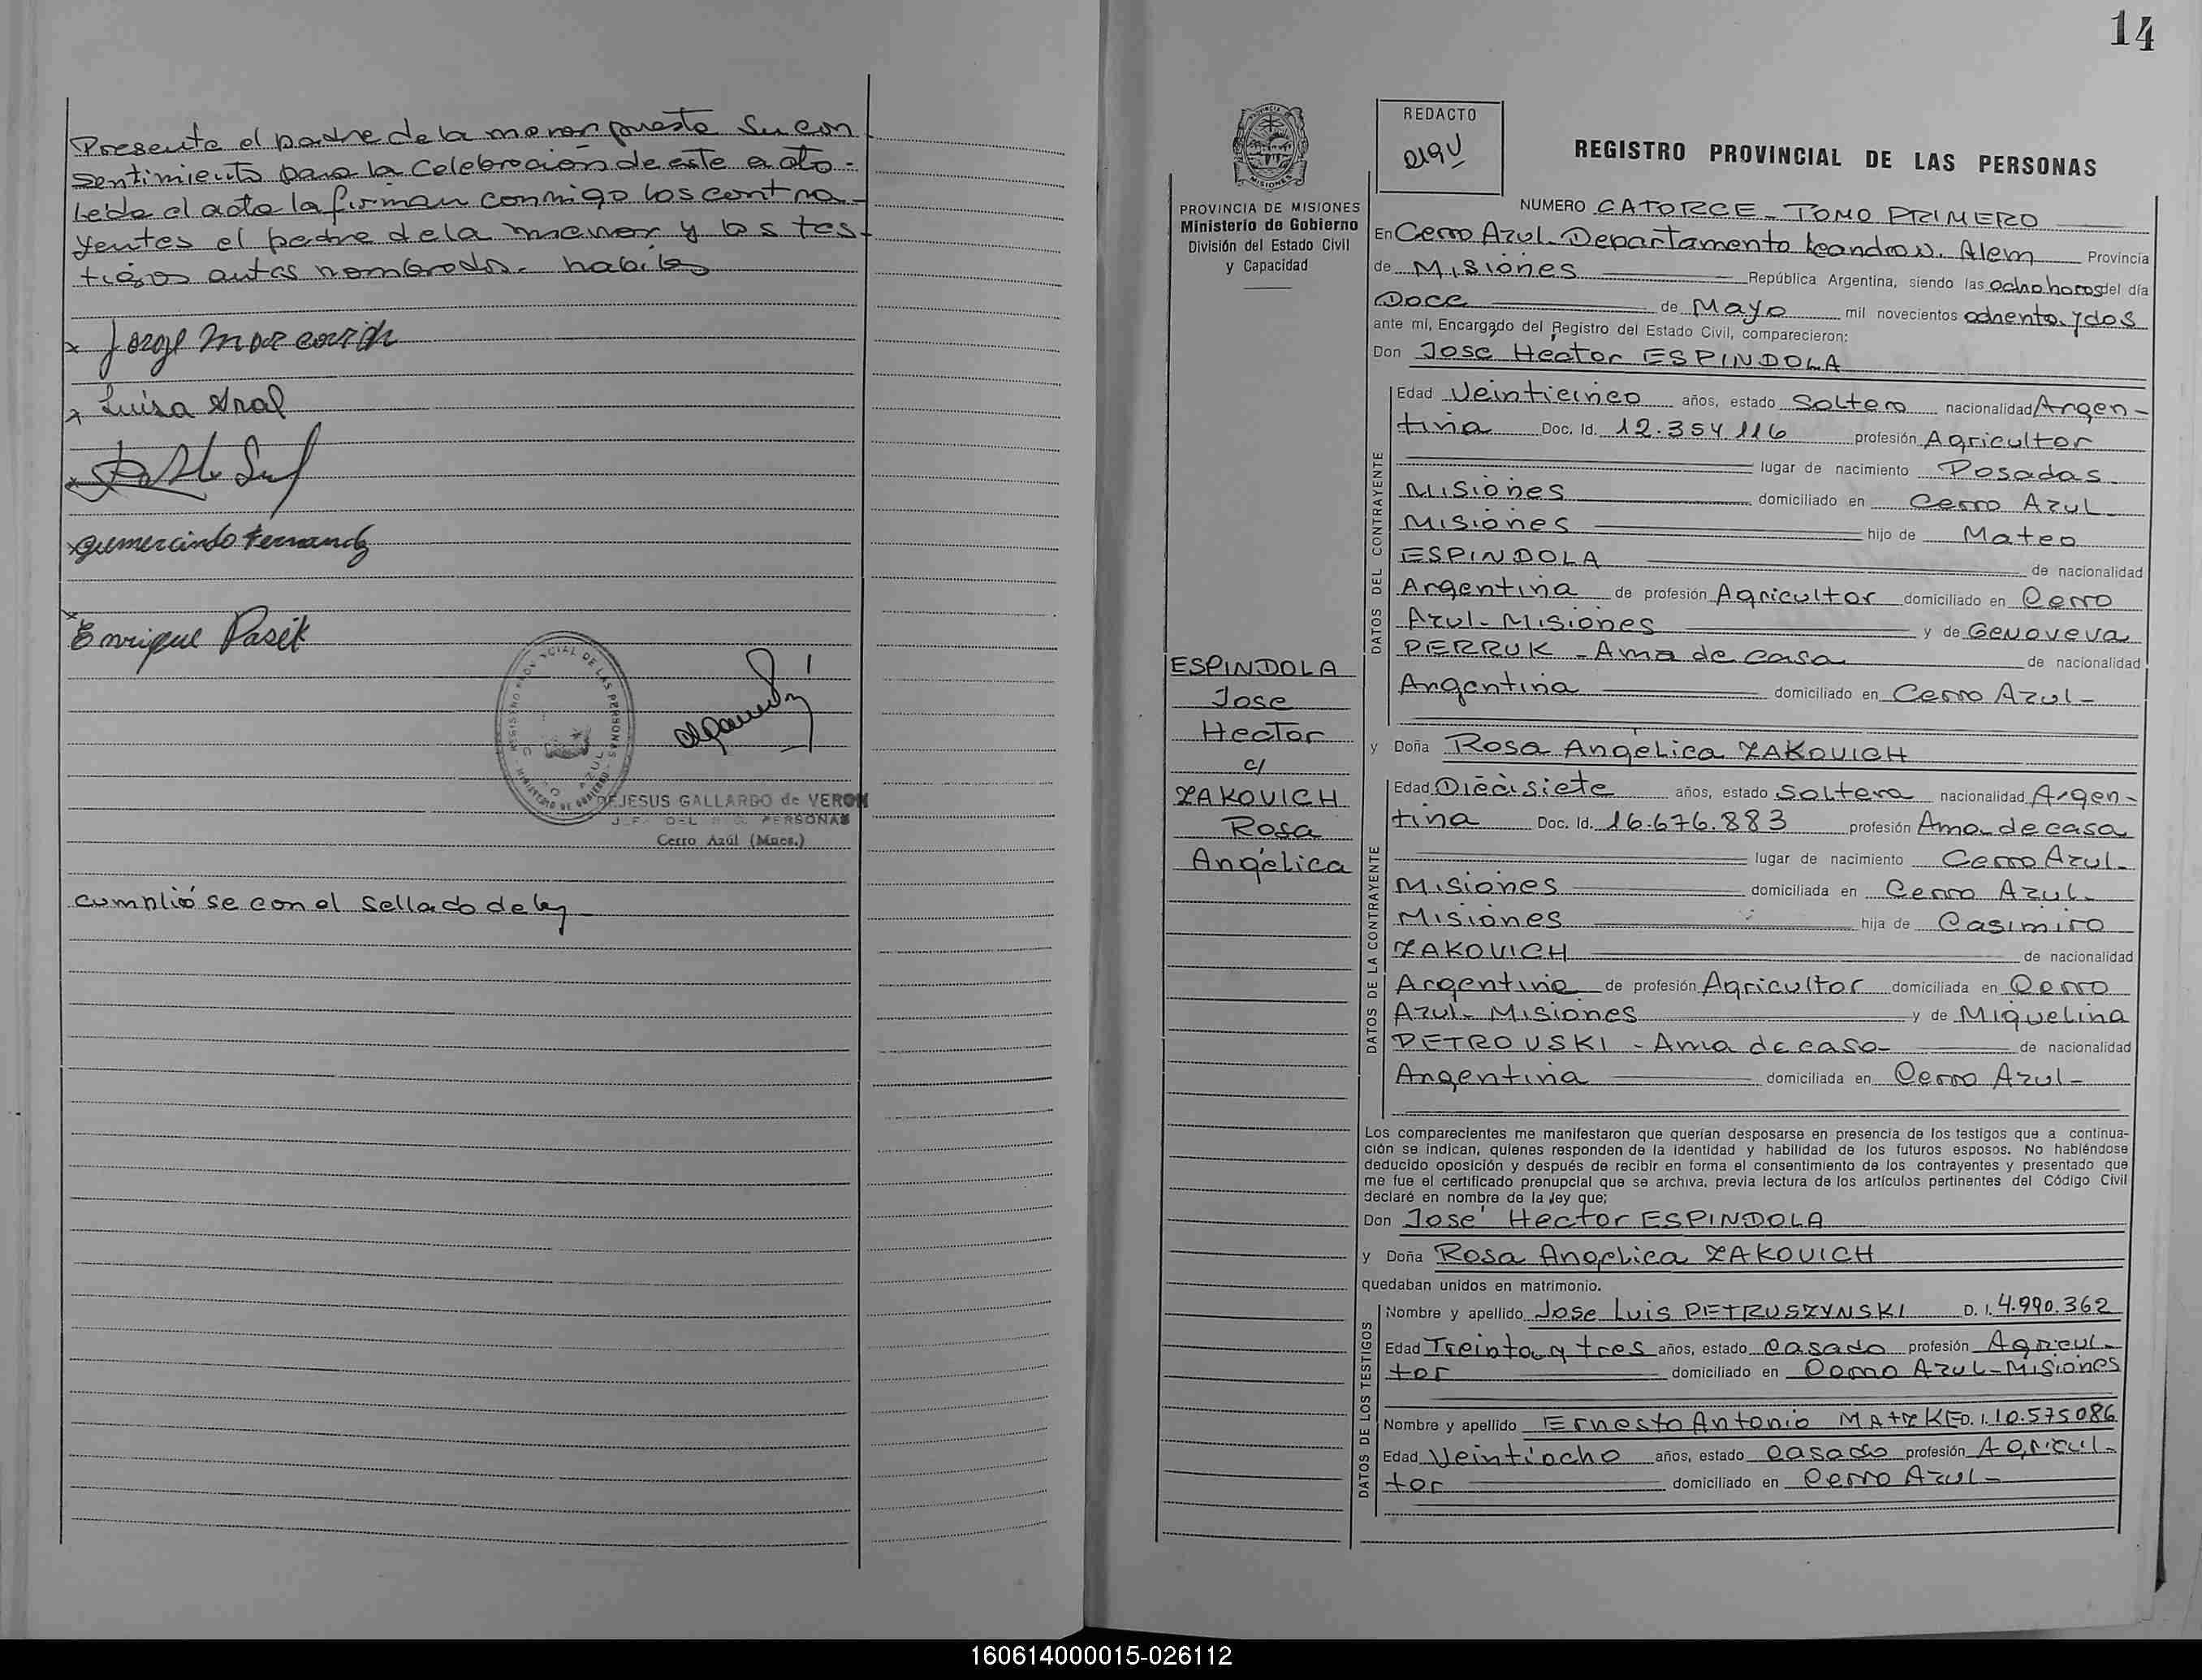 Presente el padre de la menor presta su con
sentimiento para la celebración de este acto.-
Leída el acta la firman conmigo los contra-
yentes el padre de la menor y los tes-
tigos antes nombrados. habiles
x Jorge Marcovich
x Luisa Sral
x
x Gumercindo Fernandez
x Enrique Pasik
REGISTRO PROVINCIAL DE LAS PERSONAS
MINISTERIO DE GOBIERNO
AZUL
DEJESUS GALLARDO de VERON
JEFA DEL R. P. PERSONAS
Cerro Azúl (Mnes.)
cumplió se con el sellado de ley
14
PROVINCIA DE MISIONES
Ministerio de Gobierno
División del Estado Civil
y Capacidad
ESPINDOLA
Jose
Hector
c/
ZAKOVICH
Rosa
Angélica
REDACTO
REGISTRO PROVINCIAL DE LAS PERSONAS
NUMERO CATORCE - TOMO PRIMERO
En Cerro Azul - Departamento Leandro N. Alem Provincia
de Misiones República Argentina, siendo las ocho horas del día
Doce de Mayo mil novecientos ochenta y dos
ante mí, Encargado del Registro del Estado Civil, comparecieron:
Don Jose Hector ESPINDOLA
DATOS DEL CONTRAYENTE
Edad Veinticinco años, estado Soltero nacionalidad Argen-
tina Doc. Id. 12.354.116 profesión Agricultor
lugar de nacimiento Posadas
Misiones domiciliado en Cerro Azul-
Misiones hijo de Mateo
ESPINDOLA de nacionalidad
Argentina de profesión Agricultor domiciliado en Cerro
Azul- Misiones y de Genoveva
PERRUK - Ama de casa de nacionalidad
Argentina domiciliado en Cerro Azul-
y Doña Rosa Angelica ZAKOVICH
DATOS DE LA CONTRAYENTE
Edad Diecisiete años, estado Soltera nacionalidad Argen-
tina Doc. Id. 16.676.883 profesión Ama de casa
lugar de nacimiento Cerro Azul-
Misiones domiciliada en Cerro Azul-
Misiones hija de Casimiro
ZAKOVICH de nacionalidad
Argentina de profesión Agricultor domiciliada en Cerro
Azul- Misiones y de Miguelina
PETROVSKI - Ama de casa- de nacionalidad
Argentina domiciliada en Cerro Azul-
Los comparecientes me manifestaron que querían desposarse en presencia de los testigos que a continua-
ción se indican, quienes responden de la identidad y habilidad de los futuros esposos. No habiéndose
deducido oposición y después de recibir en forma el consentimiento de los contrayentes y presentado que
me fue el certificado prenupcial que se archiva, previa lectura de los artículos pertinentes del Código Civil
declaré en nombre de la ley que;
Don José Hector ESPINDOLA
y Doña Rosa Angelica ZAKOVICH
quedaban unidos en matrimonio.
DATOS DE LOS TESTIGOS
Nombre y apellido Jose Luis PETRUSZYNSKI D. I. 4.990.362
Edad Treinta y tres años, estado casado profesión Agricul-
tor domiciliado en Cerro Azul-Misiones
Nombre y apellido Ernesto Antonio MATZKE D. I. 10.575086
Edad Veintiocho años, estado casado profesión Agricul-
tor domiciliado en Cerro Azul-
160614000015-026112